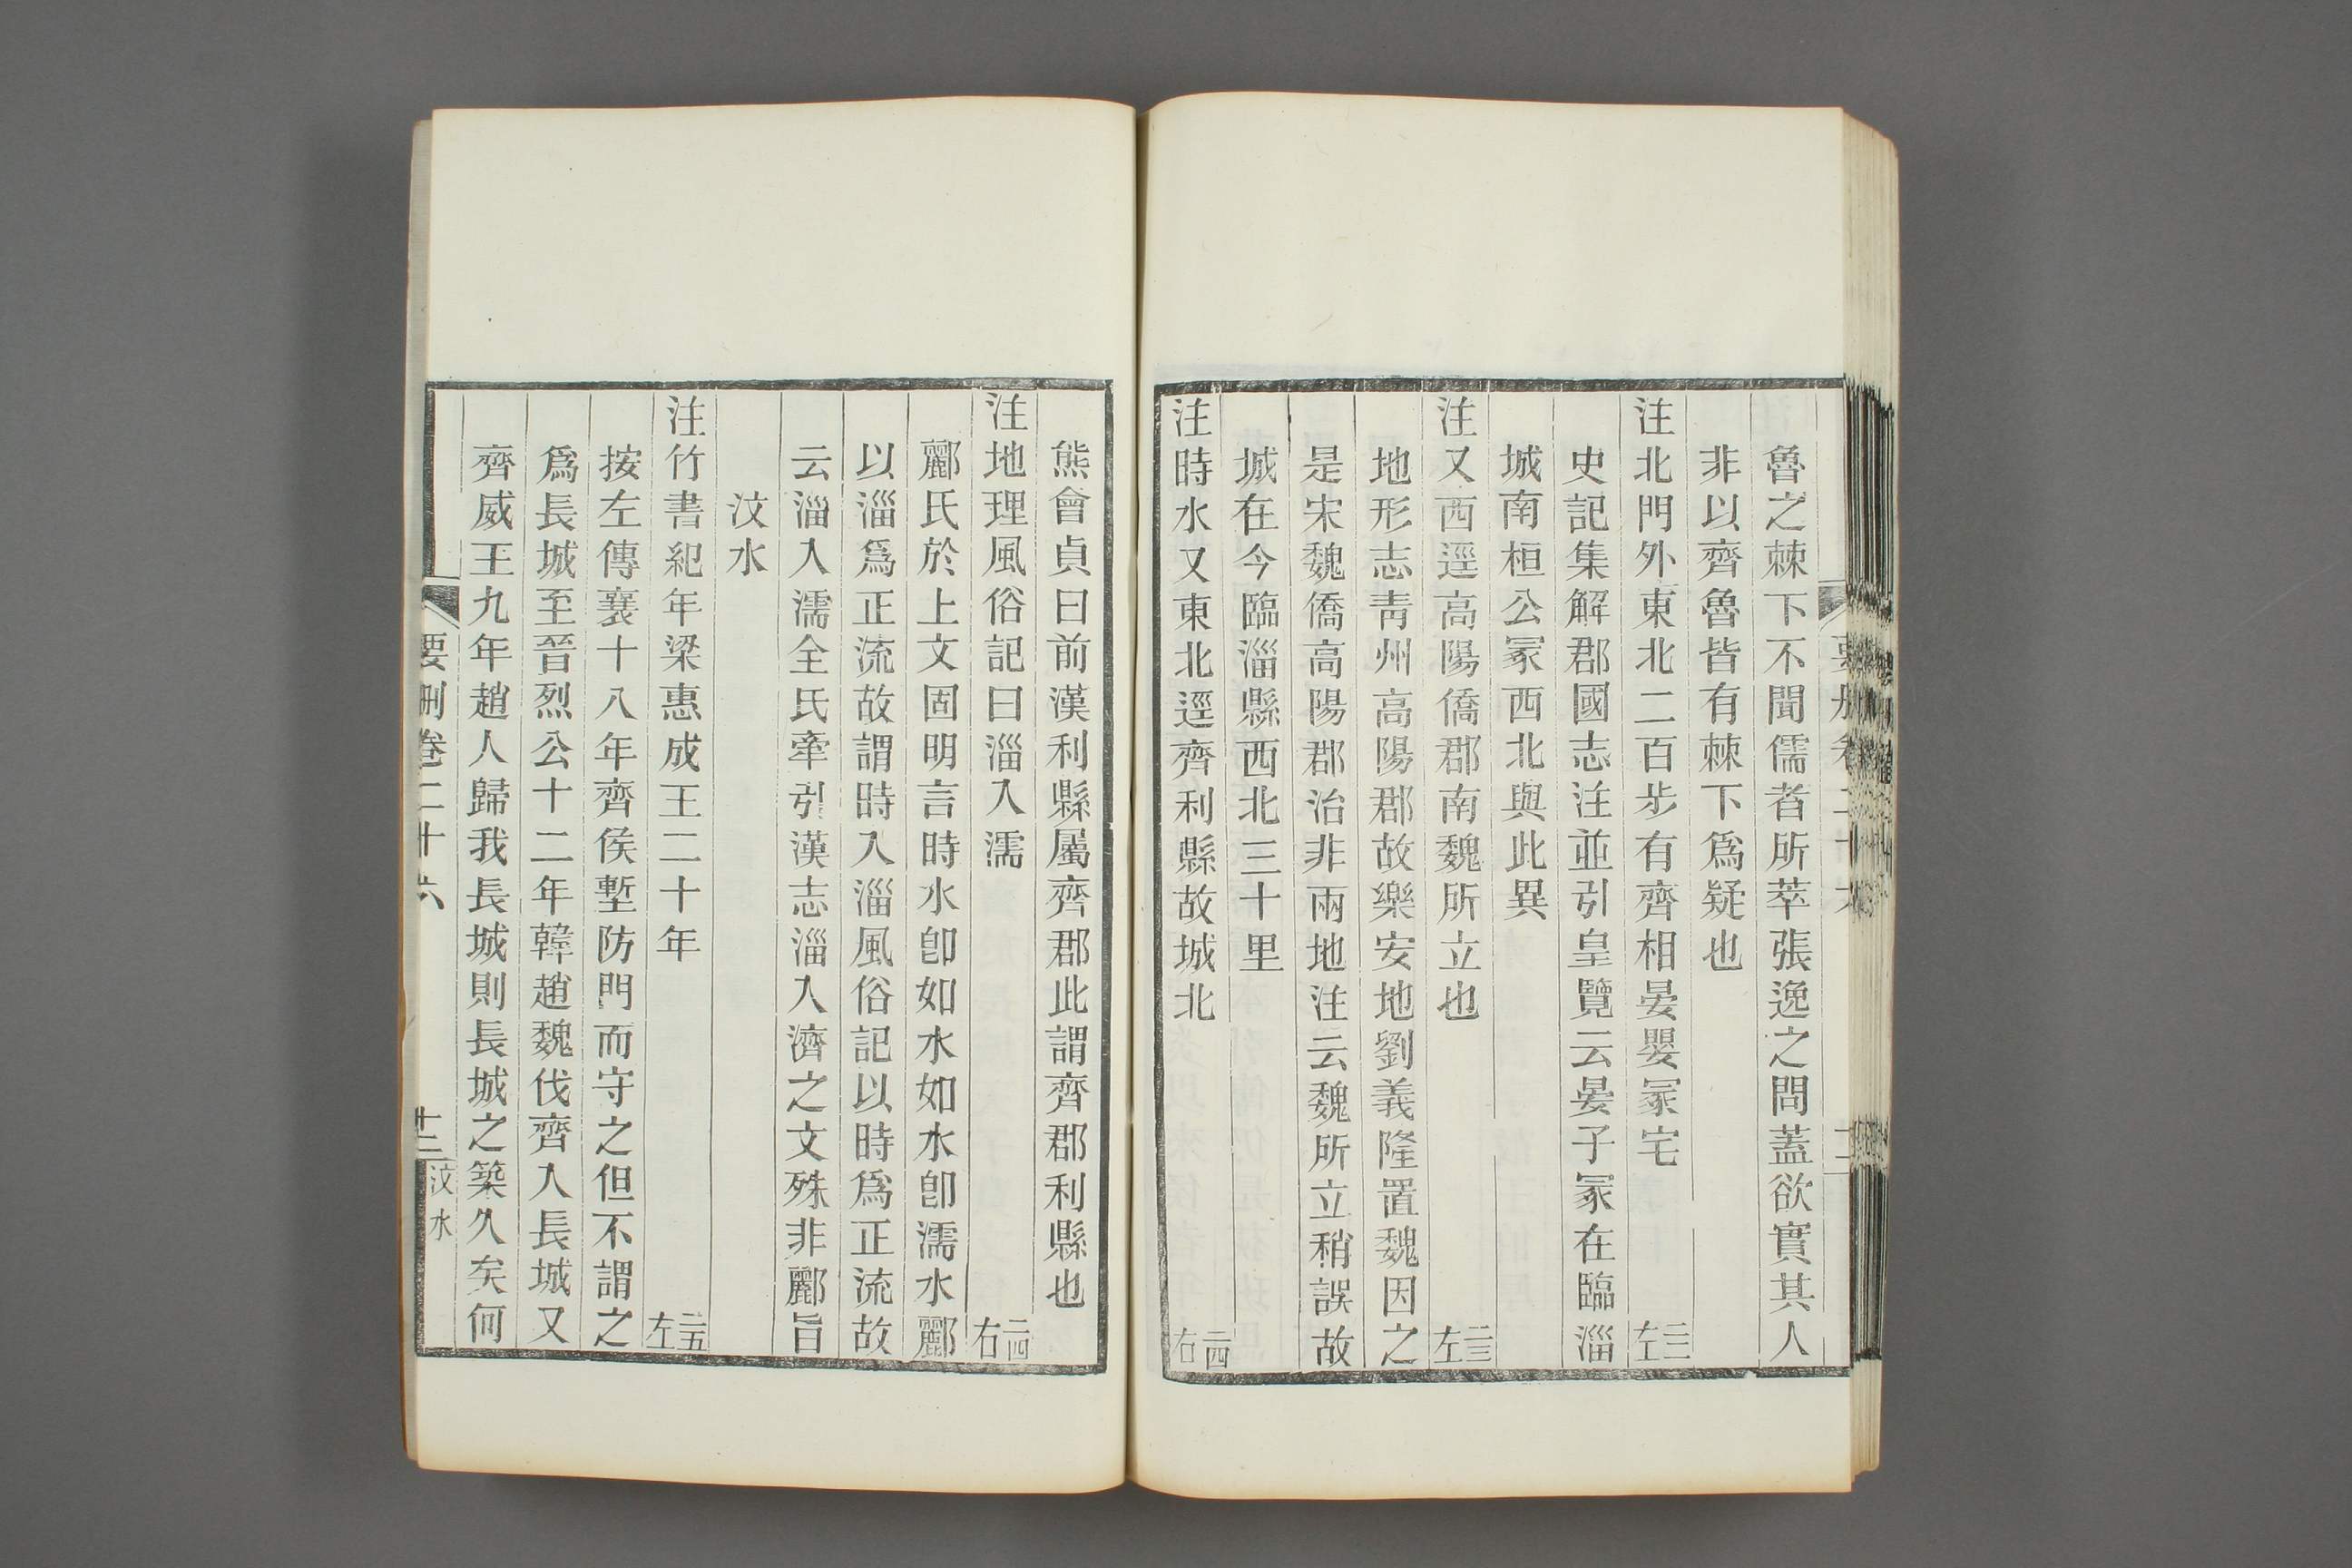 魯之棘下不聞儒者所萃張逸之問蓋欲實其人
非以齊魯皆有棘下爲疑也
注北門外東北二百步有齊相晏嬰冢宅 二三左
史記集解郡國志注並引皇覽云晏子冢在臨淄
城南桓公冢西北與此異
注又西逕高陽僑郡南魏所立也 二三左
地形志靑州高陽郡故樂安地劉義隆置魏因之
是宋魏僑高陽郡治非兩地注云魏所立稍誤故
城在今臨淄縣西北三十里
注時水又東北逕齊利縣故城北 二四右
熊會貞曰前漢利縣屬齊郡此謂齊郡利縣也
注地理風俗記曰淄入濡 二四右
酈氏於上文固明言時水卽如水如水卽濡水酈
以淄爲正流故謂時入淄風俗記以時爲正流故
云淄入濡全氏牽引漢志淄入濟之文殊非酈旨
汶水
注竹書紀年梁惠成王二十年 二五左
按左傳襄十八年齊侯塹防門而守之但不謂之
爲長城至晉烈公十二年韓趙魏伐齊入長城又
齊威王九年趙人歸我長城則長城之築久矣何
要刪卷二十六 十二 汶水